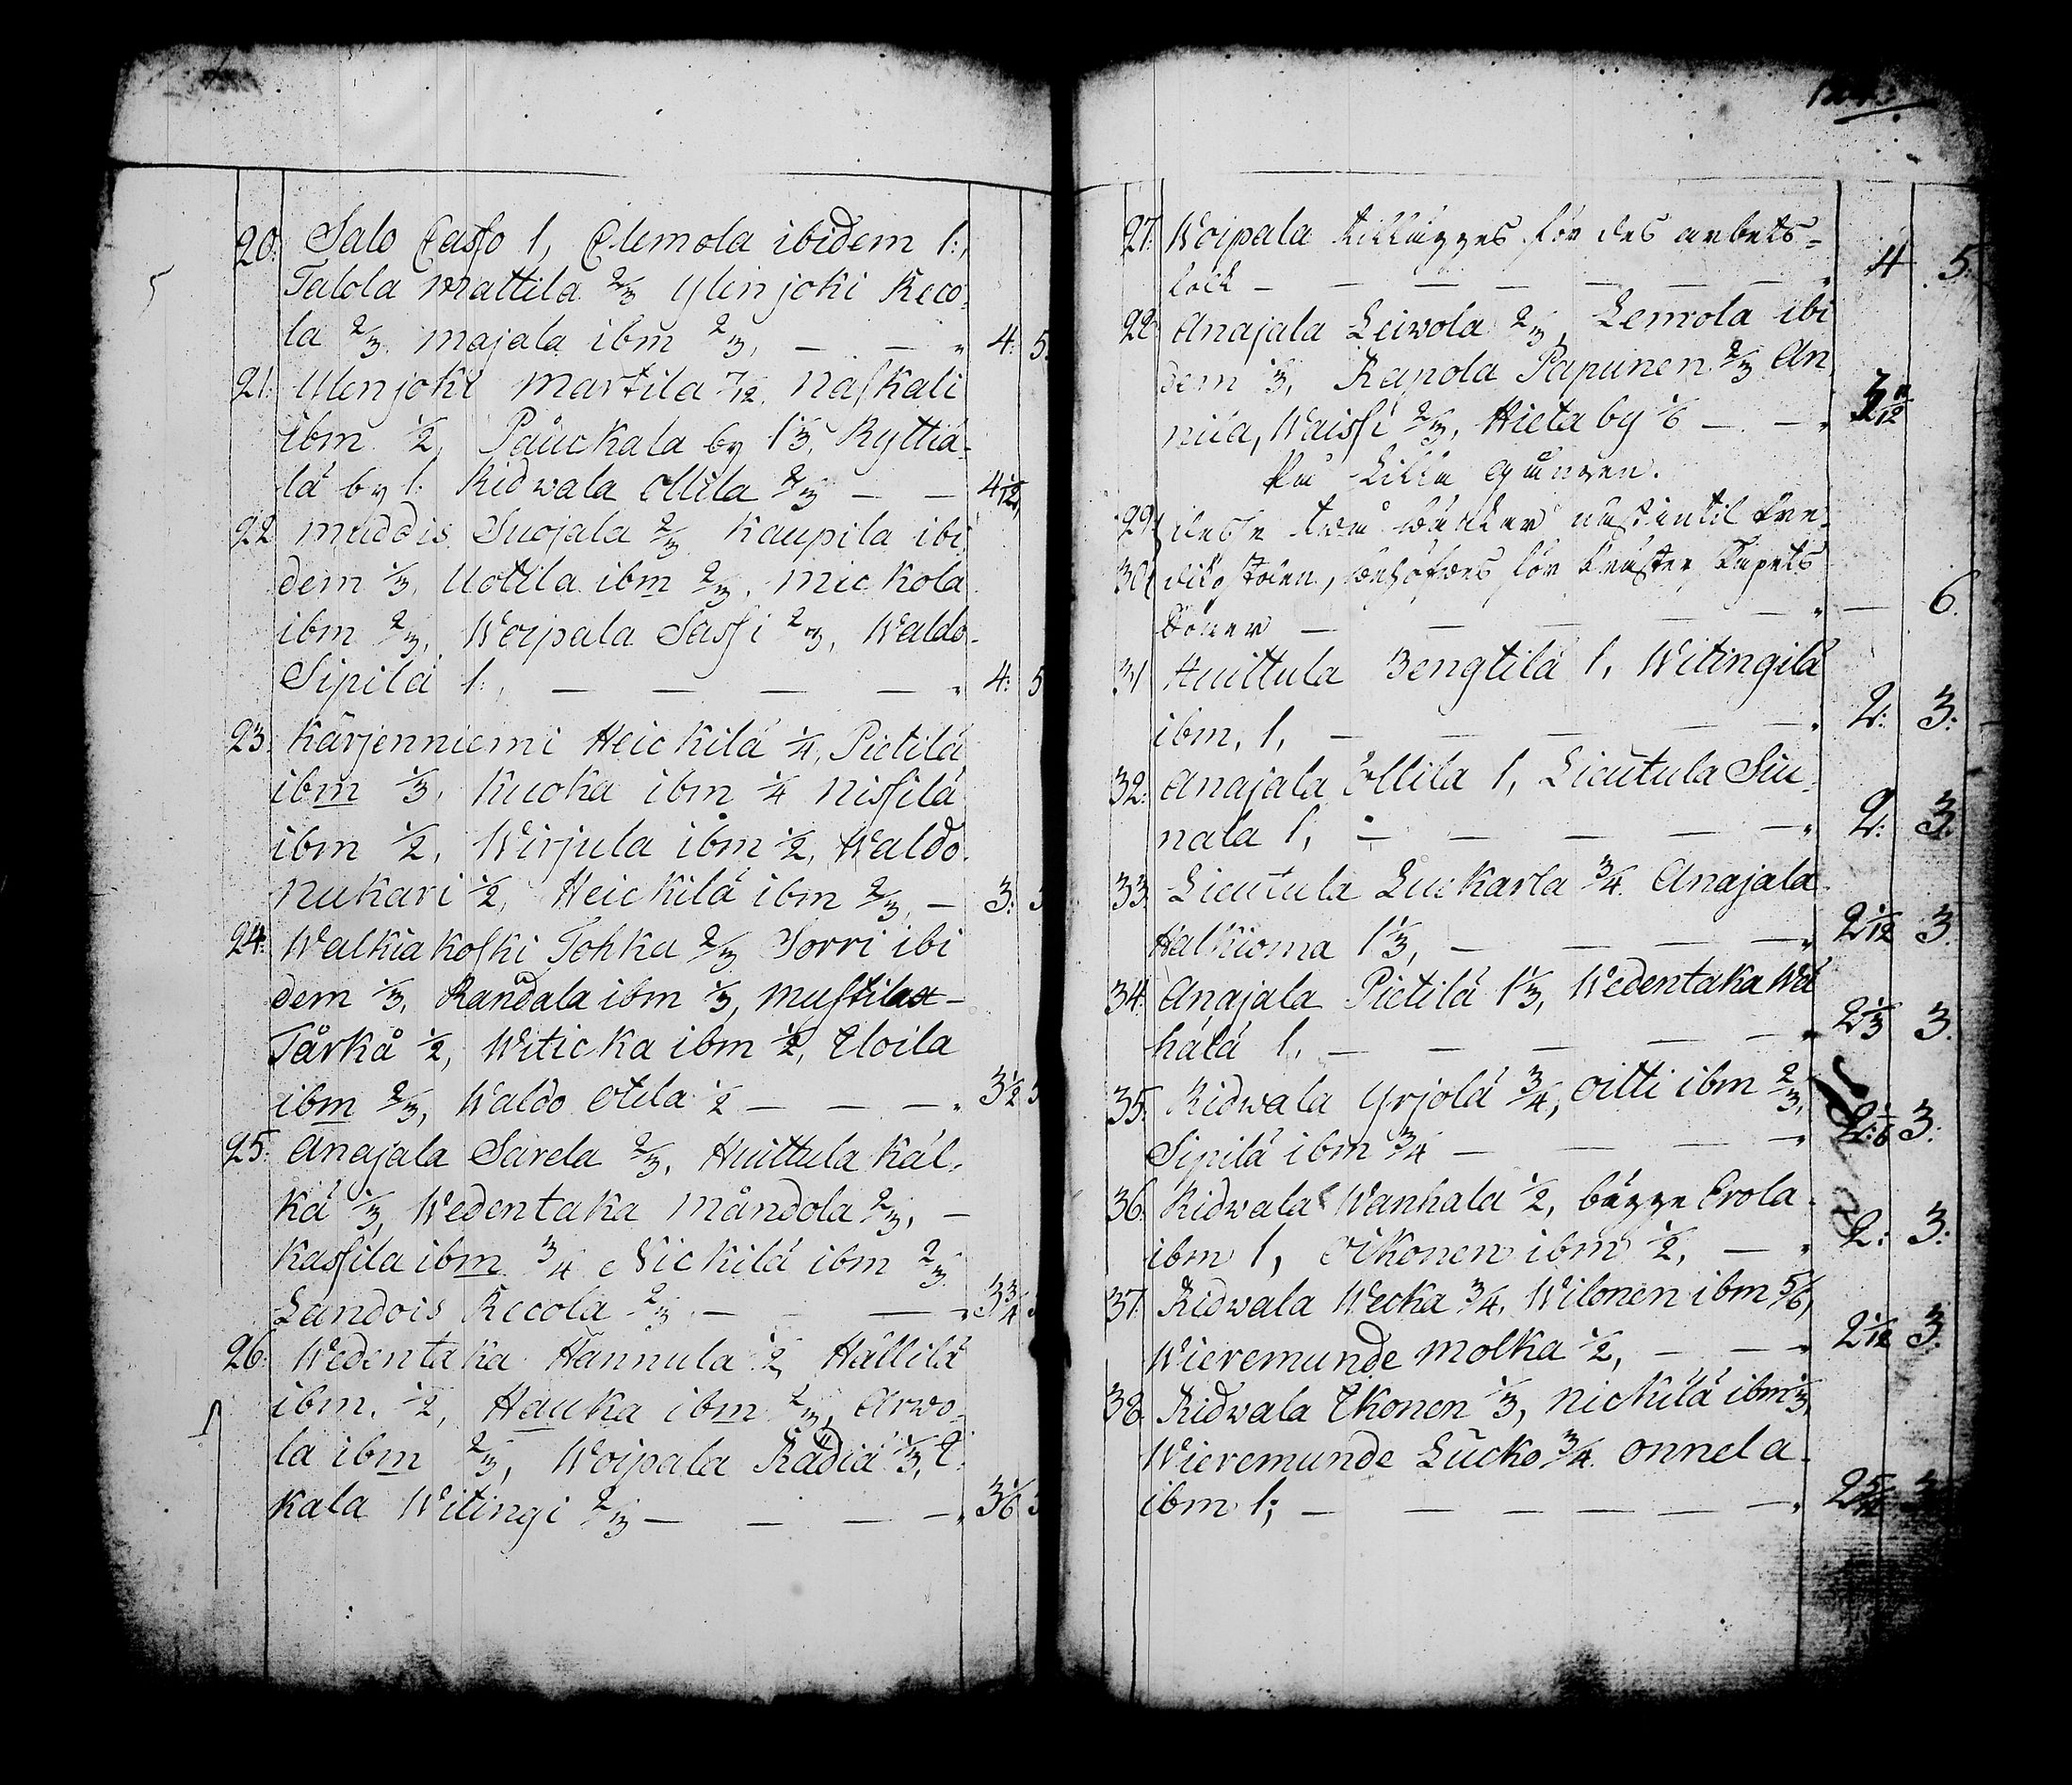 20. Salo Casso 1, Clemola ibidem 1:,
Talola Mattila 2/3 Ylenjoki Reco-
la 2/3. Majala ibm 2/3, — — " 4: 5.
21: Ylenjoki Martila 7/12, Naskali
ibm 1/2, Pauckala by 1 1/3, Kyttiä-
lä by 1: Ridwala Ollila 2/3 — — 4 1/12,
22 Muddis Suojala 2/3 Kaupila ibi
dem 1/3, Uotila ibm 2/3, Mickola
ibm 2/3, Woipala Sassi 2/3, Waldo-
Sipilä 1:, — — — — " 4: 5
23. Kärjenniemi Heickilä 1/4, Pietilä
ibm 1/3, Kuoka ibm 1/4 Nissilä
ibm 1/2, Wirjula ibm 1/2, Waldo.
Nukari 1/2, Heickilä ibm 2/3, — 3:
24: Walkiakoski Tohka 2/3 Sorri ibi
dem 1/3, Randala ibm 1/3, Mustila
Tårkå 1/2, Witicka ibm 1/2, Eloila
ibm 2/3, Waldo Otila 1/2 — — — " 3 1/2
25: Anajala Sarela 2/3, Huittula Käl-
kä 1/3, Wedentaka Måndola 2/3, —
Kassila ibm 3/4 Nickilä ibm 2/3
Landois Recola 2/3, — — — " 3 3/4
26: Wedentaka Hannula 1/2 Hällilä
ibm. 1/2, Hauka ibm 2/3, Arwo-
la ibm 2/3, Woipala Rädiä 1/3, U-
kala Witingi 2/3 — — — — " 3 1/6
27: Woipala tillägges för des arbets-
folk — — — — — — " 4 5.
Anajala Leiwola 2/3, Lemola ibi
dem 1/3, Rapola Papunen 2/3 An
nila, Waissi 2/3, Hieta by 1/6 — — " 3 11/12
På Lilla Gången.
29. desse två bänkar näst intil
30.
— — — — — " — 6.
31 Huittula Bengtilä 1, Witingilä
ibm, 1, — — — — — " 2: 3:
32: Anajala Ollila 1, Lieutula Siu-
nala 1, — — — — — " 2: 3:
33. Lieutula Luckarla 3/4 Anajala
Halkioma 1 1/3, — — — — " 2 1/12 3.
34: Anajala Pietilä 1 1/3, Wedentaka Wä
hälä 1, — — — — — " 2 1/3 3.
35. Ridwala Yrjolä 3/4, Oitti ibm 2/3,
Sipilä ibm 3/4 — — — — " 2 1/6 3:
36. Ridwala Wanhala 1/2, bägge Erola
ibm 1, Oikonen ibm 1/2, — " 2: 3:
37. Ridwala Wecka 3/4, Wilonen ibm 5/6,
Wieremunde Molka 1/2, — — — " 2 1/12 3.
38. Ridwala Ekonen 1/3, Nickilä ibm 1/3,
Wieremunde Lucko 3/4 Onnela
ibm 1; — — — — — — " 2 5/12 3